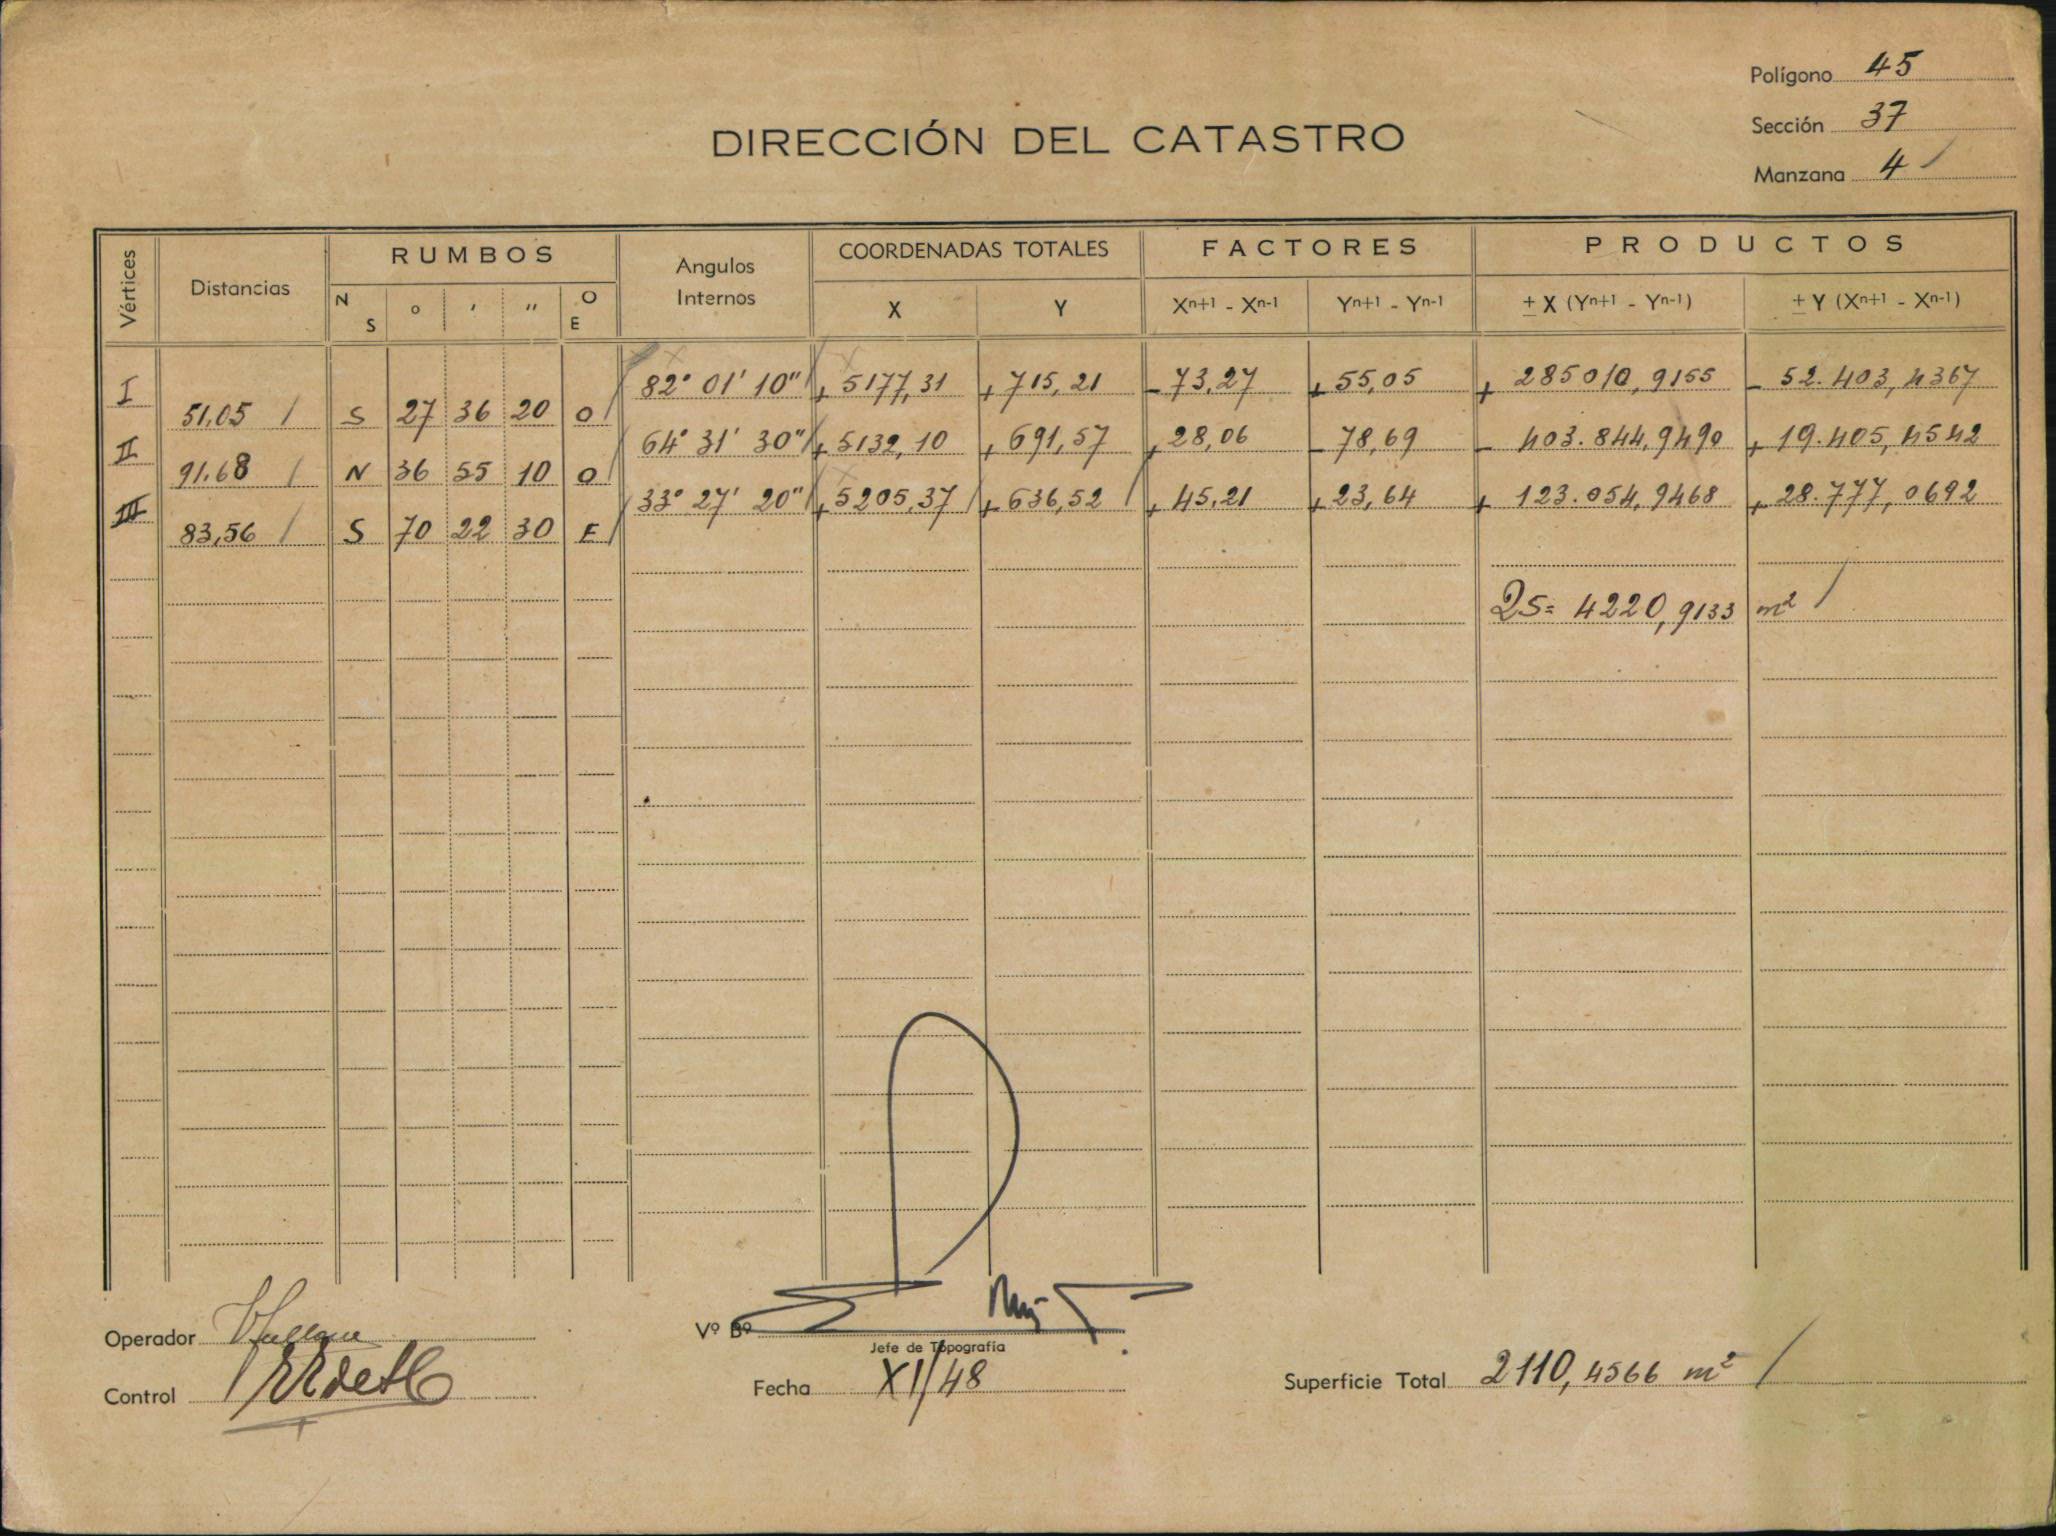 Polígono 45
Sección 37
Manzana 4
DIRECCIÓN DEL CATASTRO
Vértices Distancias RUMBOS Angulos Internos COORDENADAS TOTALES FACTORES PRODUCTOS
N S ° ' " O E X Y Xn+1 - Xn-1 Yn+1 - Yn-1 ± X (Yn+1 - Yn-1) ± Y (Xn+1 - Xn-1)
I 82° 01' 10" + 5177,31 + 715,21 - 73,27 + 55,05 + 285010,9155 - 52.403,4367
51,05 S 27 36 20 O
II 64° 31' 30" + 5132,10 + 691,57 + 28,06 - 78,69 - 403.844,9490 + 19.405,4542
91,68 N 36 55 10 O
III 33° 27' 20" + 5205,37 + 636,52 + 45,21 + 23,64 + 123.054,9468 + 28.777,0692
83,56 S 70 22 30 E
2S= 4220,9133 m²
Operador
Vº Bº
Jefe de Topografía
Control
Fecha XI/48
Superficie Total 2110,4566 m²